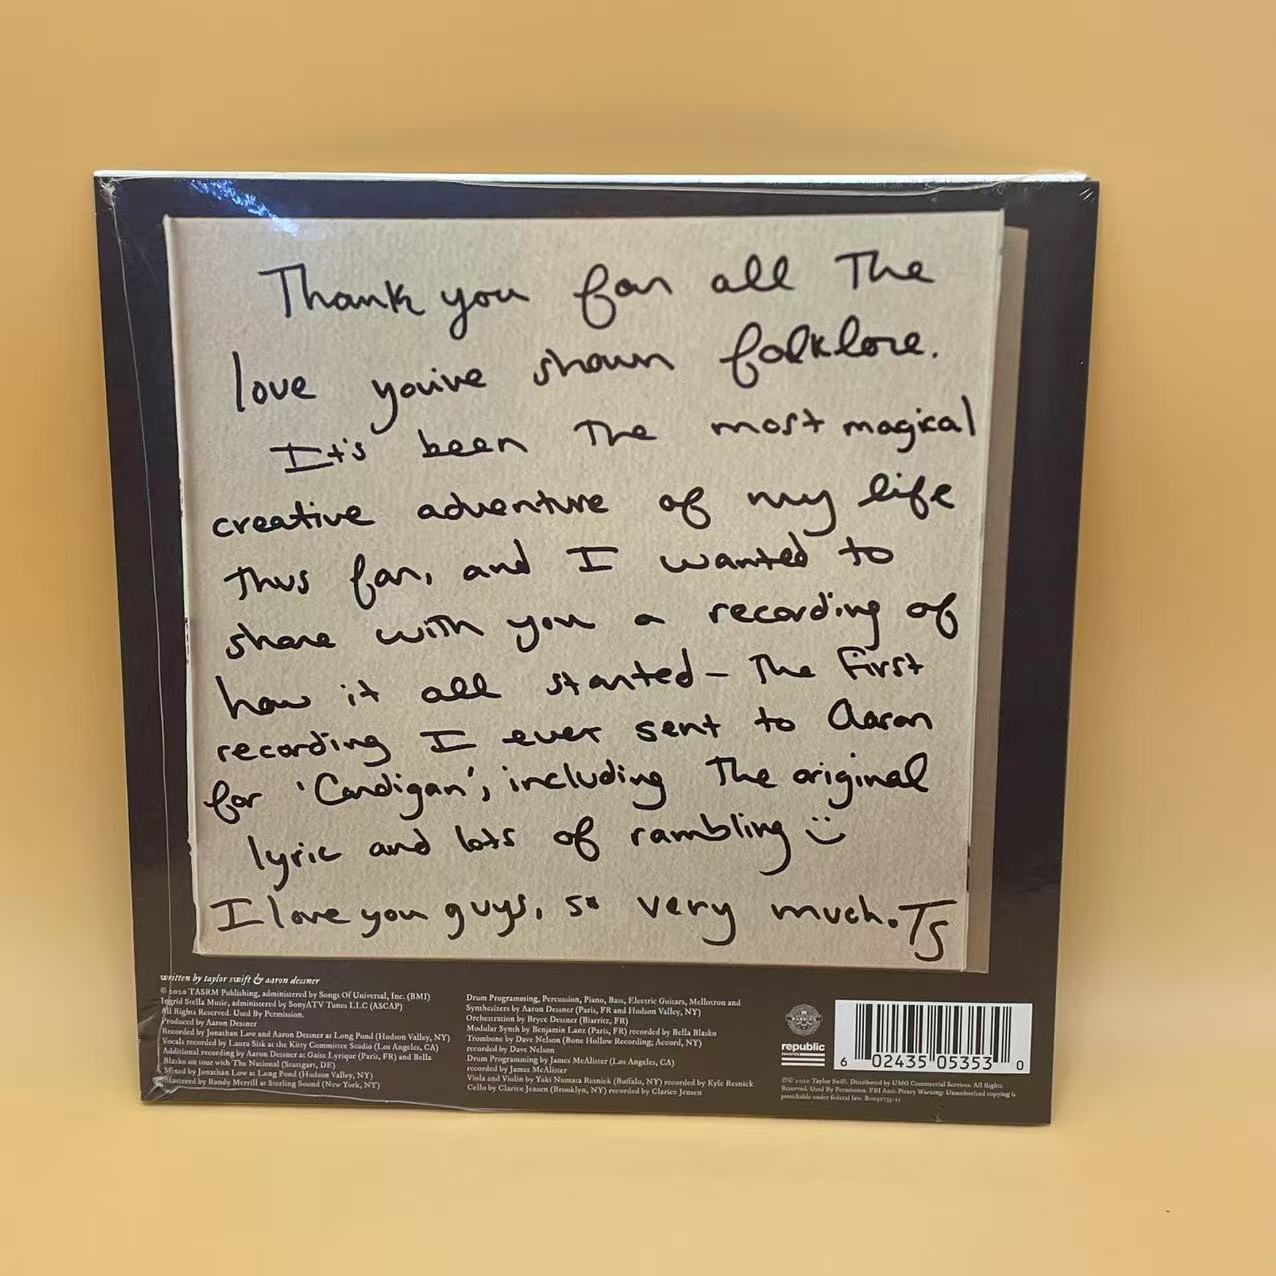 Thank you for all The
love you've shown folklore.
It's been The most magical
creative adventure of my life
thus far, and I wanted to
share with you a recording of
how it all started – The first
recording I ever sent to Aaron
for 'Cardigan', including The original
lyric and lots of rambling
I love you guys, so very much. TS
written by taylor swift & aaron dessner
© 2020 TASRM Publishing, administered by Songs Of Universal, Inc. (BMI)
Ingrid Stella Music, administered by SonyATV Tunes LLC (ASCAP)
All Rights Reserved. Used By Permission.
Produced by Aaron Dessner
Recorded by Jonathan Low and Aaron Dessner at Long Pond (Hudson Valley, NY)
Vocals recorded by Laura Sisk at the Kitty Committee Studio (Los Angeles, CA)
Additional recording by Aaron Dessner at Gaite Lyrique (Paris, FR) and Bella
Blasko on tour with The National (Stuttgart, DE)
Mixed by Jonathan Low at Long Pond (Hudson Valley, NY)
Mastered by Randy Merrill at Sterling Sound (New York, NY)
Drum Programming, Percussion, Piano, Bass, Electric Guitars, Mellotron and
Synthesizers by Aaron Dessner (Paris, FR and Hudson Valley, NY)
Orchestration by Bryce Dessner (Biarritz, FR)
Modular Synth by Benjamin Lanz (Paris, FR) recorded by Bella Blasko
Trombone by Dave Nelson (Bone Hollow Recording; Accord, NY)
recorded by Dave Nelson
Drum Programming by James McAlister (Los Angeles, CA)
recorded by James McAlister
Viola and Violin by Yuki Numata Resnick (Buffalo, NY) recorded by Kyle Resnick
Cello by Clarice Jensen (Brooklyn, NY) recorded by Clarice Jensen
republic
records
6 02435 05353 0
℗© 2020 Taylor Swift. Distributed by UMG Commercial Services. All Rights
Reserved. Used By Permission. FBI Anti-Piracy Warning: Unauthorized copying is
punishable under federal law.